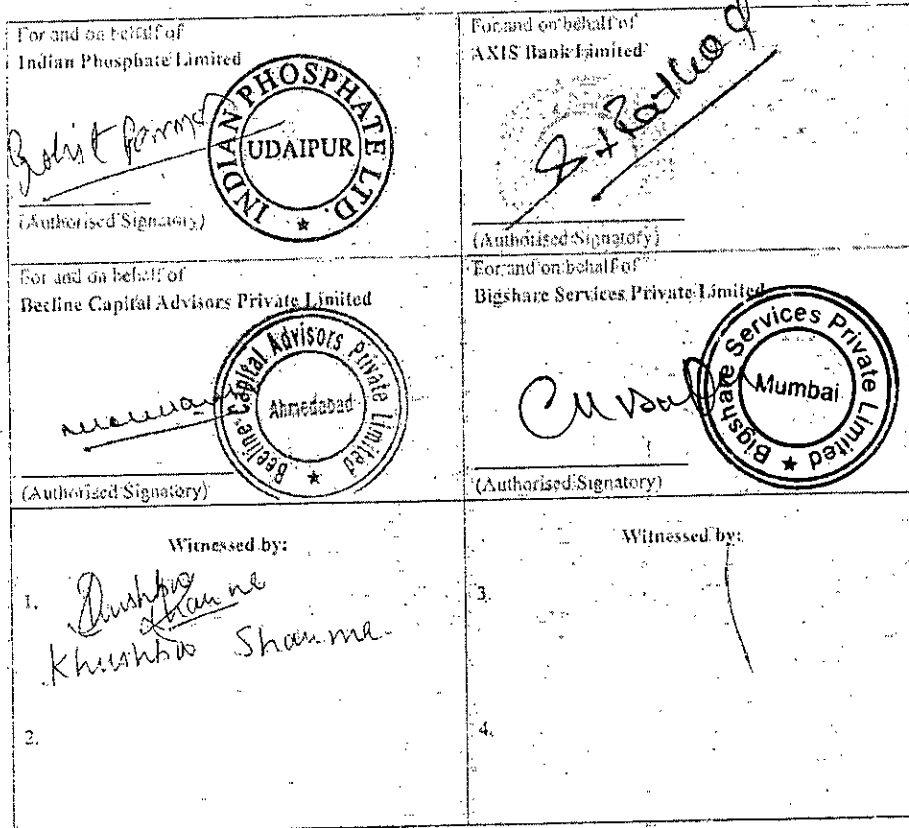 For and on behalf of
Indian Phosphate Limited
Rohit
INDIAN PHOSPHATE LTD.
UDAIPUR
(Authorised Signatory)
For and on behalf of
AXIS Bank Limited
(Authorised Signatory)
For and on behalf of
Beeline Capital Advisors Private Limited
Beeline Capital Advisors Private Limited
Ahmedabad
(Authorised Signatory)
For and on behalf of
Bigshare Services Private Limited
Bigshare Services Private Limited
Mumbai
(Authorised Signatory)
Witnessed by:
1.
Khushboo Sharma
2.
Witnessed by:
3.
4.